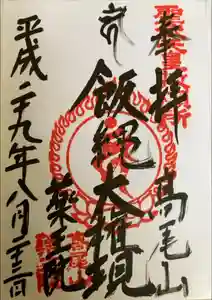 奉拝
高尾山
飯縄大権現
薬王院
平成二十九年八月二十三日